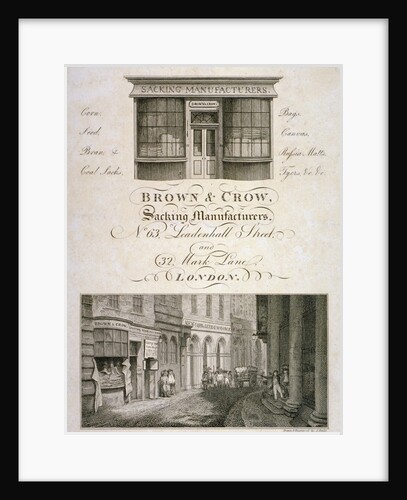 SACKING MANUFACTURERS.
BROWN & CROW
Corn,
Seed,
Bran, &
Coal Sacks.
Bags,
Canvas,
Russia Matts,
Tyers &c. &c.
BROWN & CROW,
Sacking Manufacturers,
No. 63, Leadenhall Street,
and
32, Mark Lane,
LONDON.
BROWN & CROW